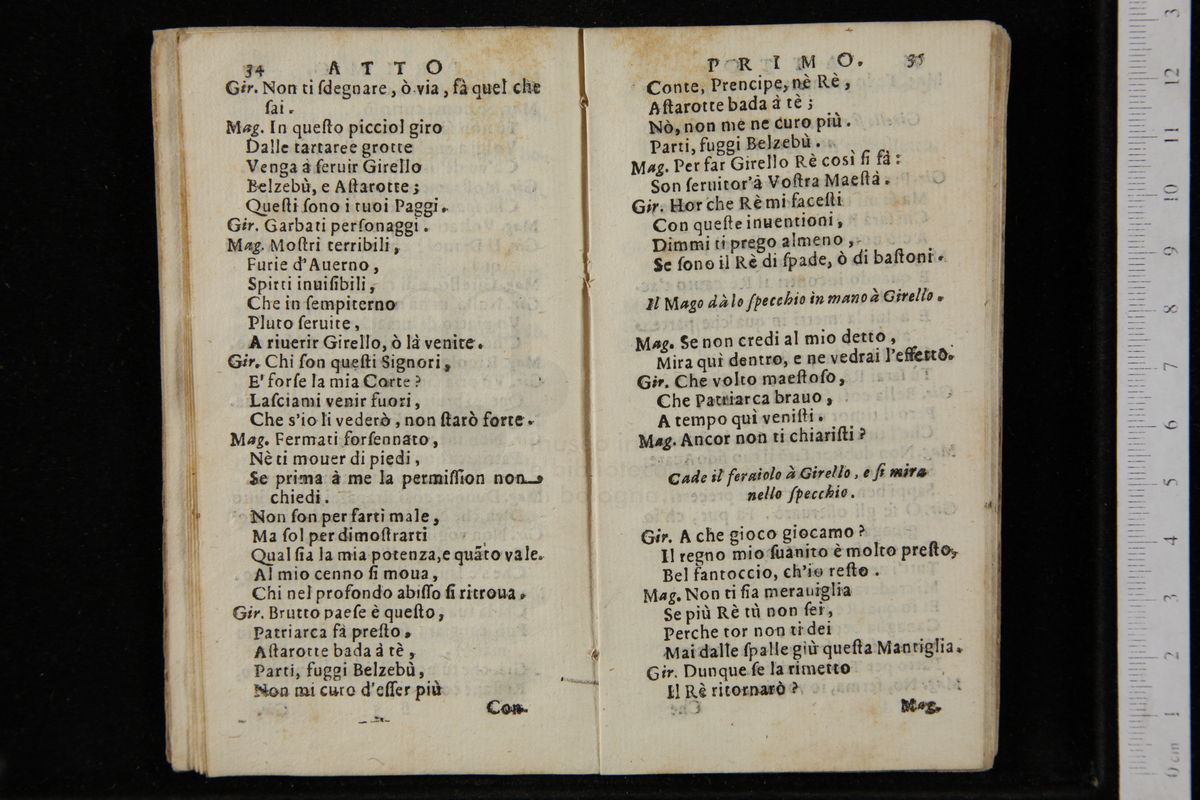 34 ATTO
Gir. Non ti ſdegnare, ò via, fà quel che
ſai.
Mag. In queſto picciol giro
Dalle tartaree grotte
Venga à ſeruir Girello
Belzebù, e Aſtarotte;
Queſti ſono i tuoi Paggi.
Gir. Garbati perſonaggi.
Mag. Moſtri terribili,
Furie d'Auerno,
Spirti inuiſibili,
Che in ſempiterno
Pluto ſeruite,
A riuerir Girello, ò là venite.
Gir. Chi ſon queſti Signori,
E' forſe la mia Corte?
Laſciami venir fuori,
Che s'io li vederò, non ſtarò forte.
Mag. Fermati forſennato,
Nè ti mouer di piedi,
Se prima à me la permiſſion non
chiedi.
Non ſon per farti male,
Ma ſol per dimoſtrarti
Qual ſia la mia potenza, e quãto vale.
Al mio cenno ſi moua,
Chi nel profondo abiſſo ſi ritroua.
Gir. Brutto paeſe è queſto,
Patriarca fà preſto,
Aſtarotte bada à tè,
Parti, fuggi Belzebù,
Non mi curo d'eſſer più
Con.
PRIMO. 35
Conte, Prencipe, nè Rè,
Aſtarotte bada à tè;
Nò, non me ne curo più.
Parti, fuggi Belzebù.
Mag. Per far Girello Rè così ſi fà:
Son ſeruitor'à Voſtra Maeſtà.
Gir. Hor che Rè mi faceſti
Con queſte inuentioni,
Dimmi ti prego almeno,
Se ſono il Rè di ſpade, ò di baſtoni.
Il Mago dà lo ſpecchio in mano à Girello.
Mag. Se non credi al mio detto,
Mira quì dentro, e ne vedrai l'effetto.
Gir. Che volto maeſtoſo,
Che Patriarca brauo,
A tempo quì veniſti.
Mag. Ancor non ti chiariſti?
Cade il feraiolo à Girello, e ſi mira
nello ſpecchio.
Gir. A che gioco giocamo?
Il regno mio ſuanito è molto preſto,
Bel fantoccio, ch'io reſto.
Mag. Non ti ſia merauiglia
Se più Rè tù non ſei,
Perche tor non ti dei
Mai dalle ſpalle giù queſta Mantiglia.
Gir. Dunque ſe la rimetto
Il Rè ritornarò?
Mag.
0 cm 1 2 3 4 5 6 7 8 9 10 11 12 3